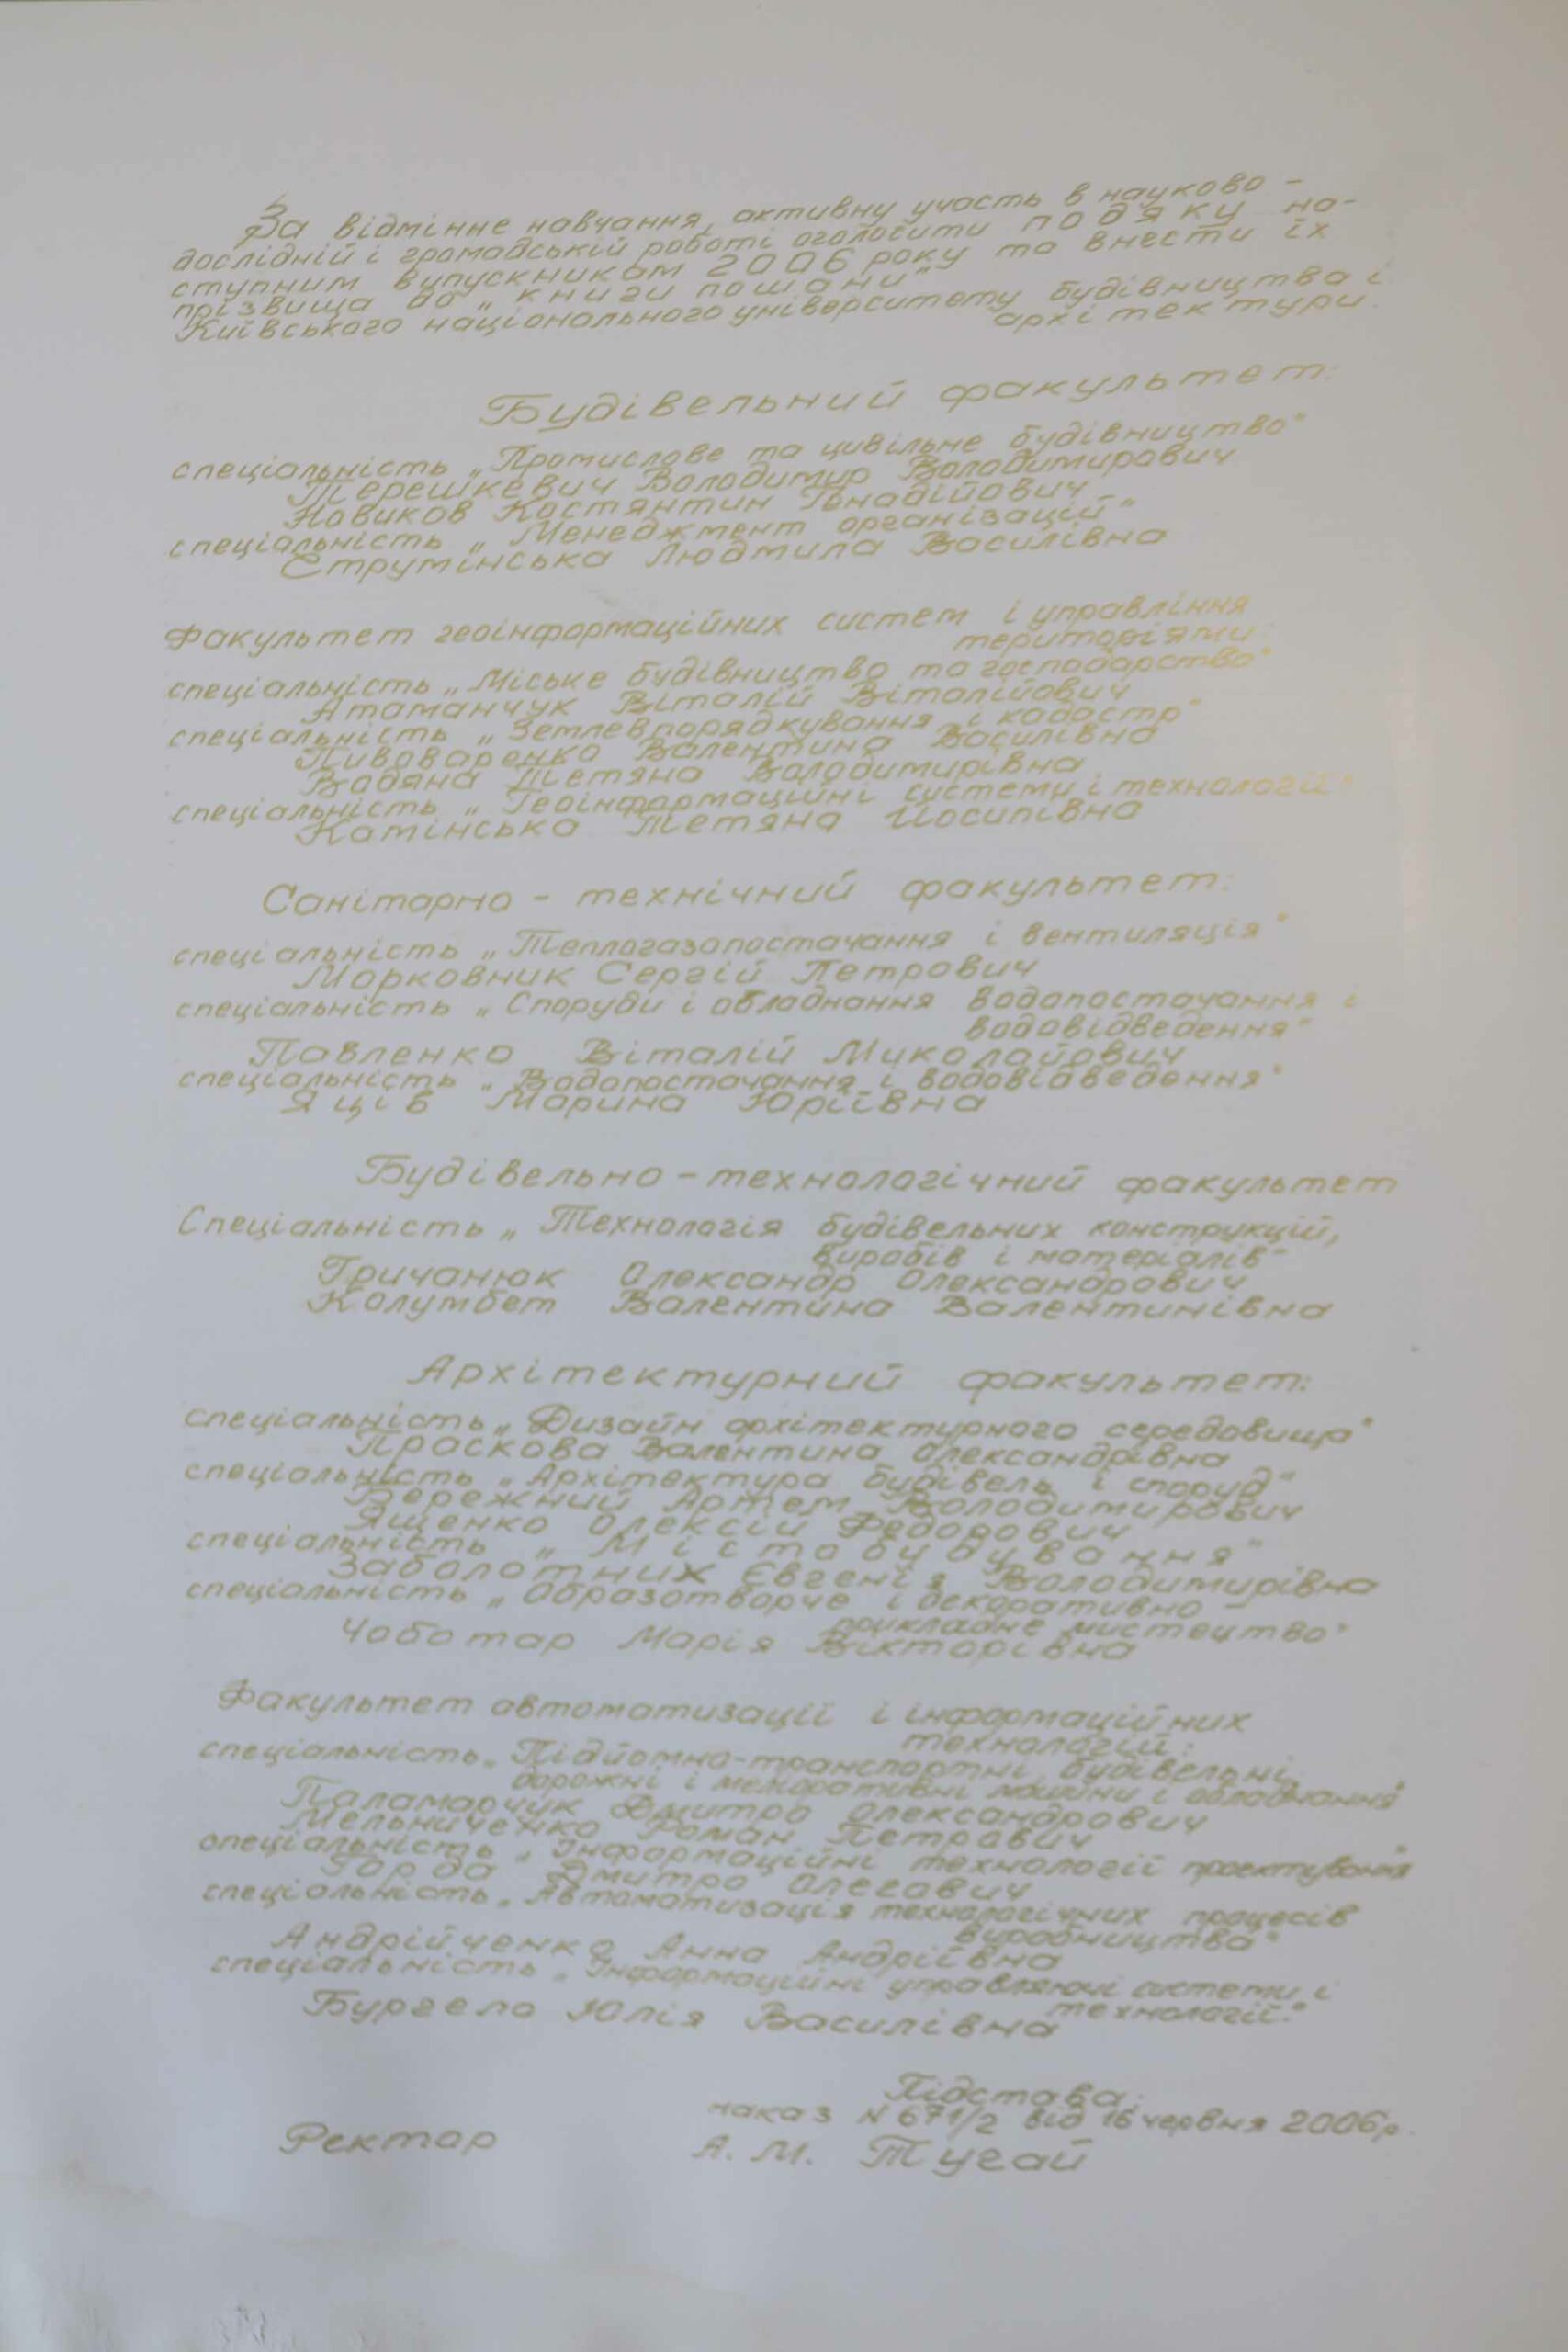 За відмінне навчання, активну участь в науково-
дослідній і громадській роботі оголосити подяку на-
ступним випускникам 2006 року та внести їх
прізвища до „книги пошани"
Київського національного університету будівництва і
архітектури.
Будівельний факультет:
спеціальність „Промислове та цивільне будівництво"
Терешкевич Володимир Володимирович
Новиков Костянтин Генадійович
спеціальність „Менеджмент організацій"
Струмінська Людмила Василівна
Факультет геоінформаційних систем і управління
територіями:
спеціальність „Міське будівництво та господарство"
Атаманчук Віталій Віталійович
спеціальність „Землевпорядкування і кадастр"
Пивоваренко Валентина Василівна
Водяна Тетяна Володимирівна
спеціальність „Геоінформаційні системи і технології"
Камінська Тетяна Йосипівна
Санітарно-технічний факультет:
спеціальність „Теплогазопостачання і вентиляція"
Морковник Сергій Петрович
спеціальність „Споруди і обладнання водопостачання і
водовідведення"
Павленко Віталій Миколайович
спеціальність „Водопостачання і водовідведення"
Яців Марина Юріївна
Будівельно-технологічний факультет
Спеціальність „Технологія будівельних конструкцій,
виробів і матеріалів"
Гричанюк Олександр Олександрович
Колумбет Валентина Валентинівна
Архітектурний факультет:
спеціальність „Дизайн архітектурного середовища"
Праскова Валентина Олександрівна
спеціальність „Архітектура будівель і споруд"
Бережний Артем Володимирович
Ященко Олексій Федорович
спеціальність „Містобудування"
Заболотних Євгенія Володимирівна
спеціальність „Образотворче і декоративно-
прикладне мистецтво"
Чоботар Марія Вікторівна
Факультет автоматизації і інформаційних
технологій:
спеціальність „Підйомно-транспортні, будівельні,
дорожні і меліоративні машини і обладнання"
Паламарчук Дмитро Олександрович
Мельниченко Роман Петрович
спеціальність „Інформаційні технології проектування"
Гарда Дмитро Олегович
спеціальність „Автоматизація технологічних процесів
виробництва"
Андрійченко Анна Андріївна
спеціальність „Інформаційні управляючі системи і
технології."
Бургело Юлія Василівна
Підстава:
наказ N 671/2 від 16 червня 2006р.
Ректор А. М. Тугай